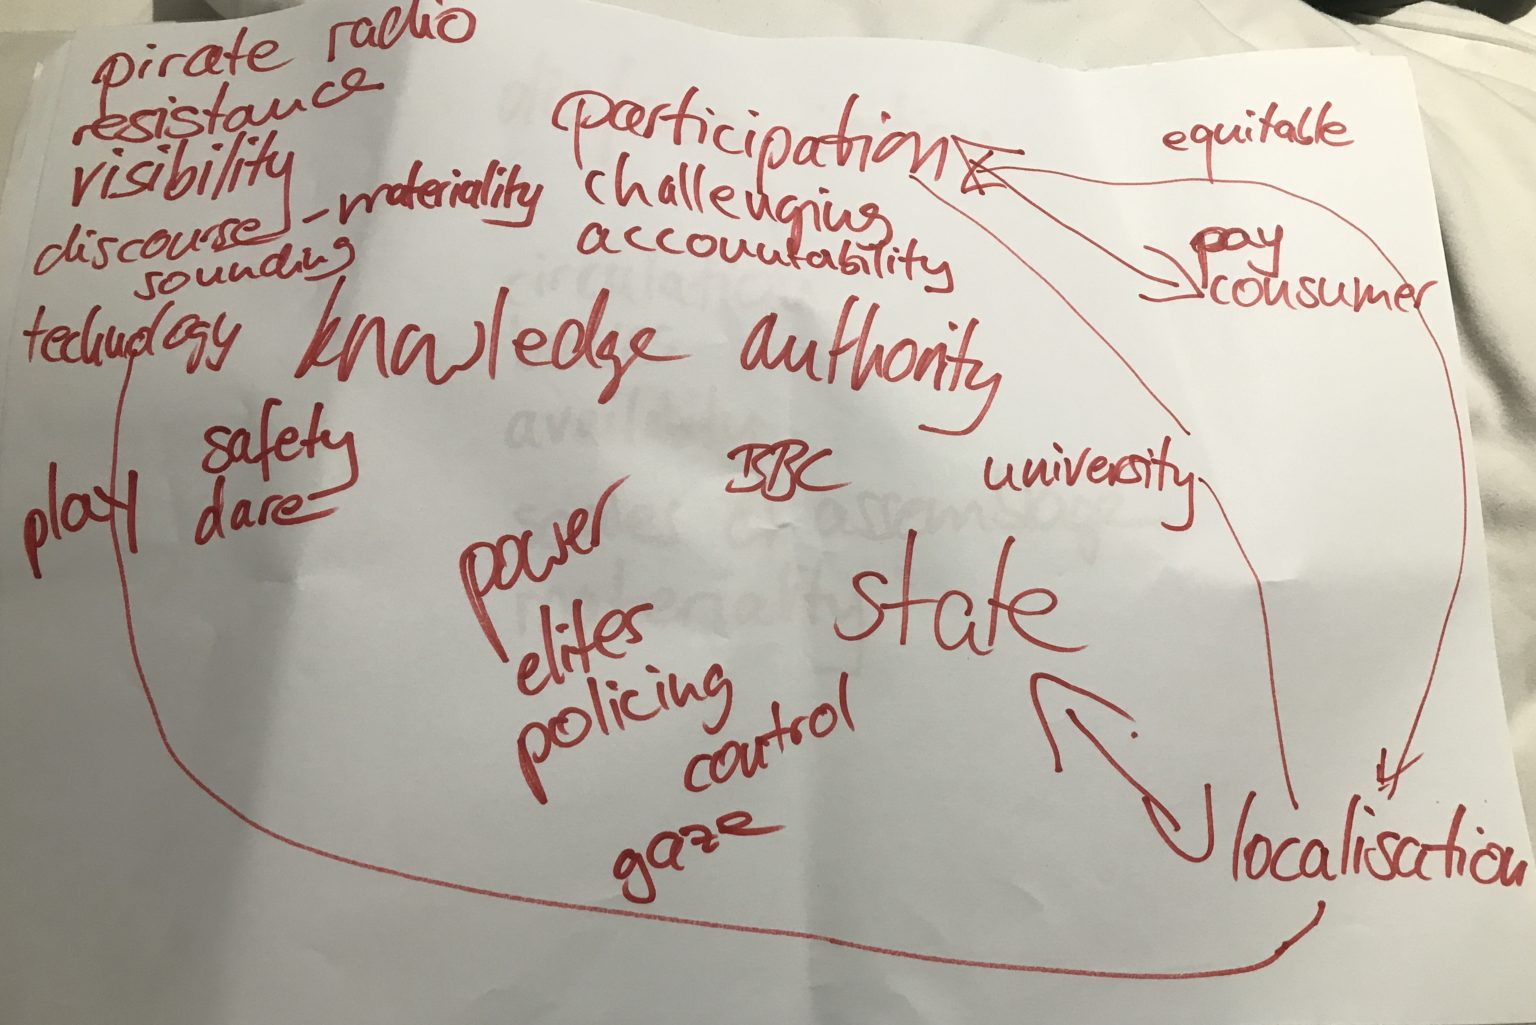 pirate radio
resistance
visibility
discourse - materiality
sounding
technology
participation
challenging
accountability
equitable
pay
consumer
knowledge authority
safety
dare
play
BBC
university
power
elites
policing
control
gaze
state
localisation
circulation
materiality